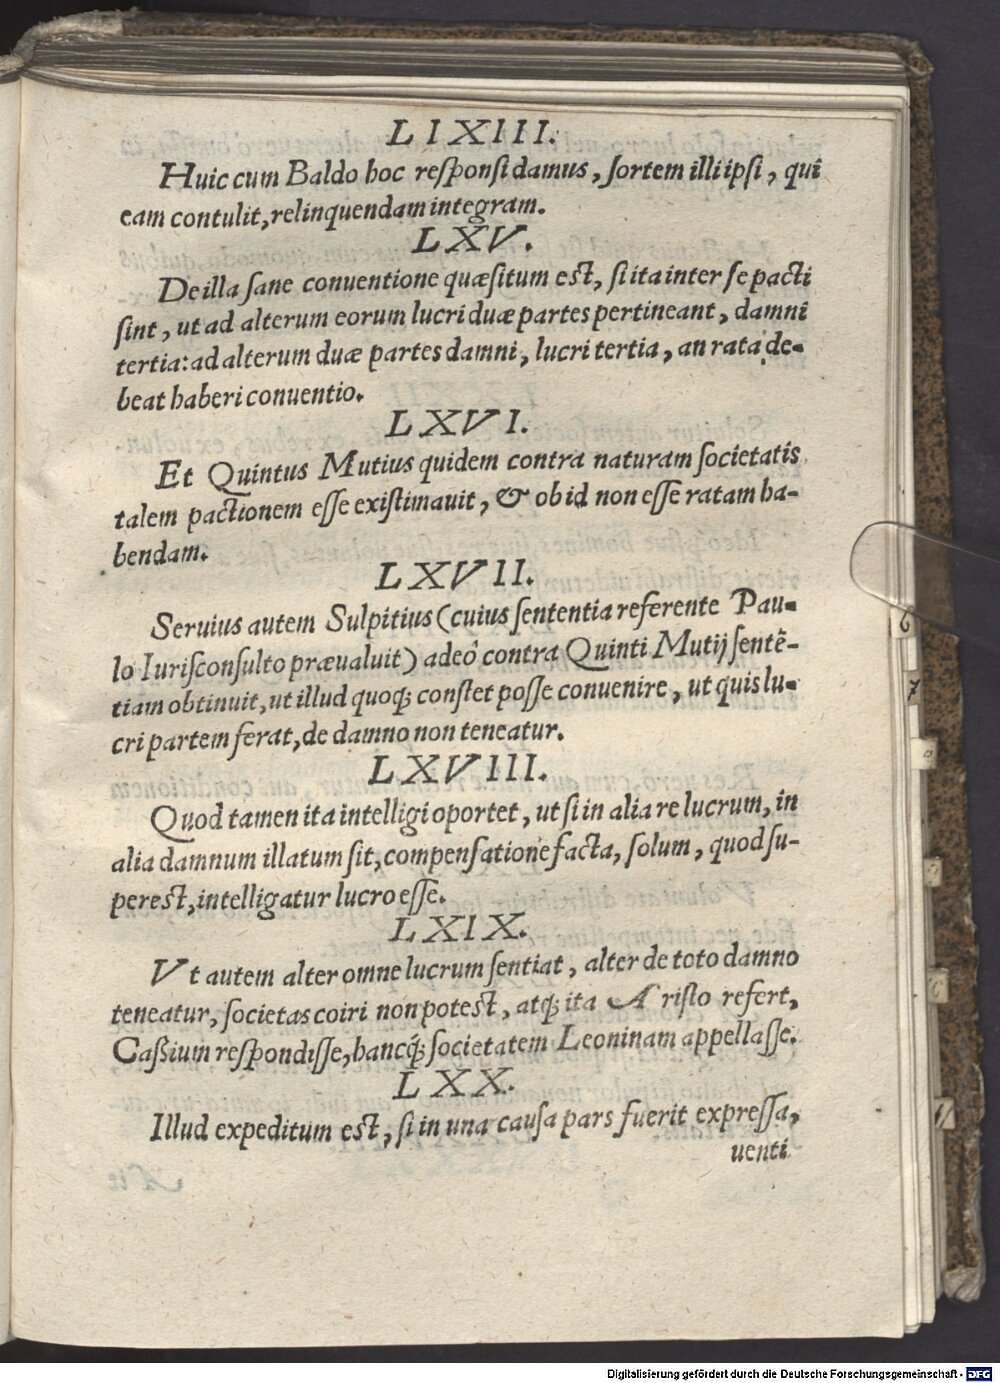 LIXIII.
Huic cum Baldo hoc responsi damus, sortem illi ipsi, qui
eam contulit, relinquendam integram.
LXV.
De illa sane conventione quæsitum est, si ita inter se pacti
sint, ut ad alterum eorum lucri duæ partes pertineant, damni
tertia: ad alterum duæ partes damni, lucri tertia, an rata de-
beat haberi conuentio.
LXVI.
Et Quintus Mutius quidem contra naturam societatis
talem pactionem esse existimauit, & ob id non esse ratam ha-
bendam.
LXVII.
Seruius autem Sulpitius (cuius sententia referente Pau-
lo Iurisconsulto præualuit) adeò contra Quinti Mutij sentē-
tiam obtinuit, ut illud quoq; constet posse convenire, ut quis lu-
cri partem ferat, de damno non teneatur.
LXVIII.
Quod tamen ita intelligi oportet, ut si in alia re lucrum, in
alia damnum illatum sit, compensatione facta, solum, quod su-
perest, intelligatur lucro esse.
LXIX.
Vt autem alter omne lucrum sentiat, alter de toto damno
teneatur, societas coiri non potest, atq; ita Aristo refert,
Cassium respondisse, hancq́; societatem Leoninam appellasse.
LXX.
Illud expeditum est, si in una causa pars fuerit expressa,
uenti
6
7
Digitalisierung gefördert durch die Deutsche Forschungsgemeinschaft - DFG